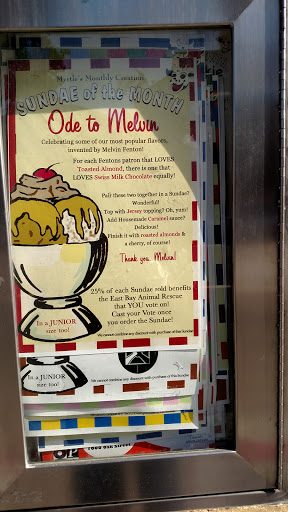 Myrtle's Monthly Creation
SUNDAE of the MONTH
Ode to Melvin
Celebrating some of our most popular flavors,
invented by Melvin Fenton!
For each Fentons patron that LOVES
Toasted Almond, there is one that
LOVES Swiss Milk Chocolate equally!
Pair these two together in a Sundae?
Wonderful!
Top with Jersey topping? Oh, yum!
Add Housemade Caramel sauce?
Delicious!
Finish it with roasted almonds &
a cherry, of course!
Thank you, Melvin!
25% of each Sundae sold benefits
the East Bay Animal Rescue
that YOU vote on!
Cast your Vote once
you order the Sundae!
In a JUNIOR
size too!
We cannot combine any discount with purchase of this Sundae
In a JUNIOR
size too!
We cannot combine any discount with purchase of this Sundae